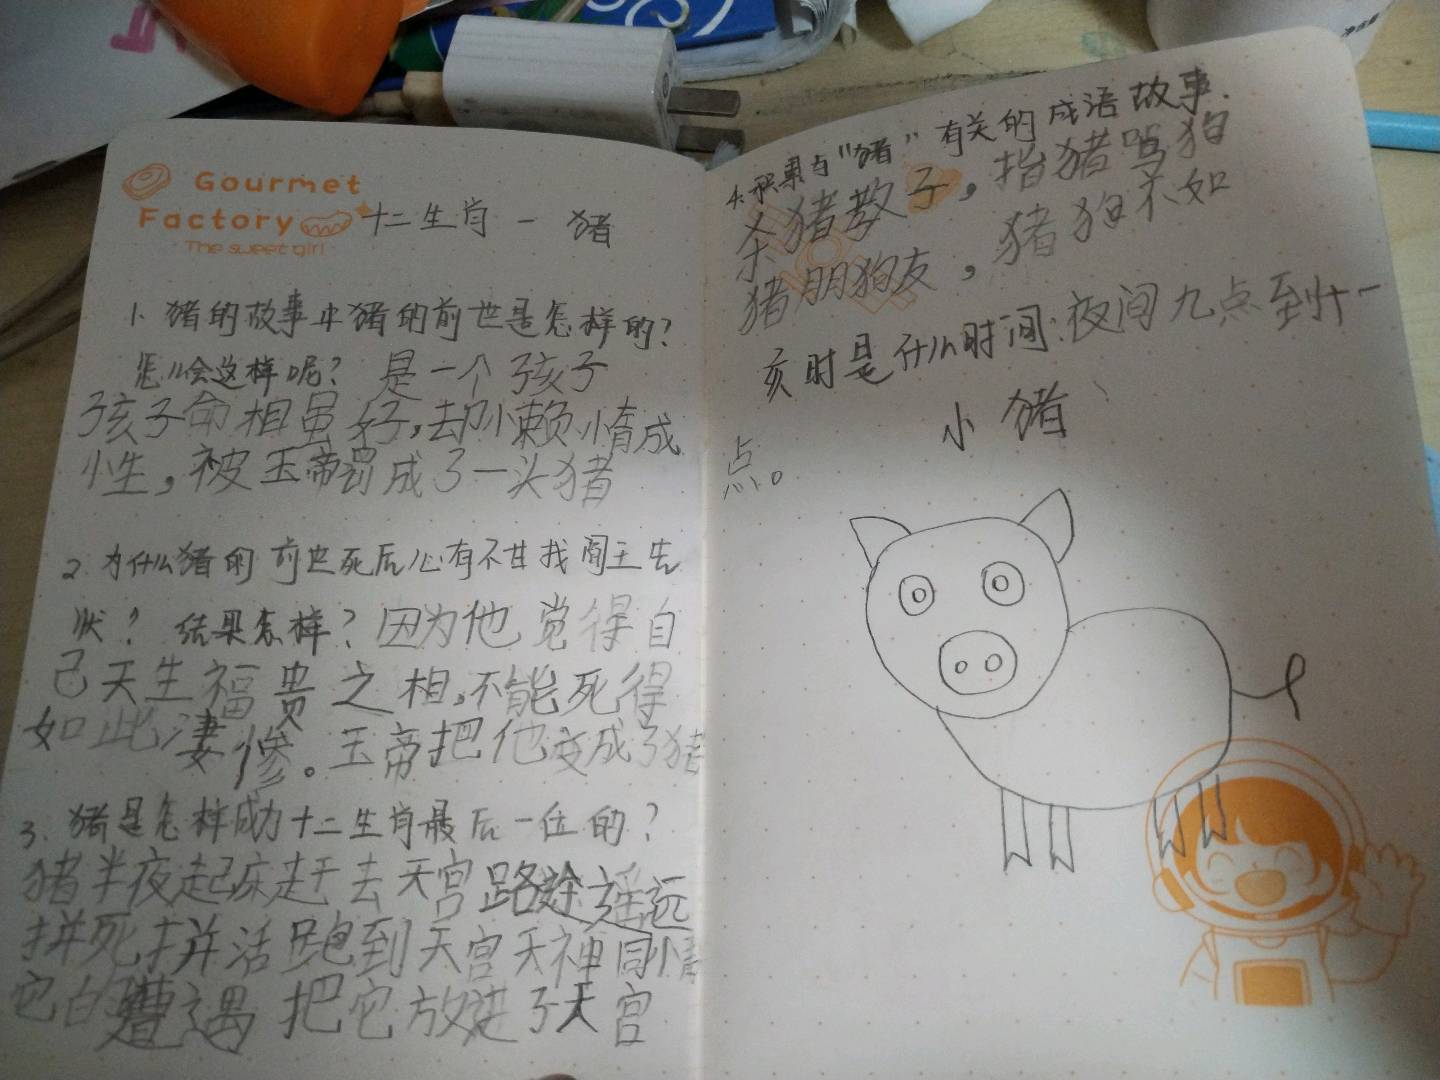 Gourmet
Factory
The sweet girl
十二生肖 - 猪
1. 猪的故事中猪的前世是怎样的?
怎么会这样呢? 是一个孩子
孩子命相虽好,却小懒惰成
小生,被玉帝罚成了一头猪
2. 为什么猪的前世死后心有不甘找阎王告
状? 结果怎样? 因为他觉得自
己天生福贵之相,不能死得
如此凄惨。玉帝把他变成了猪
3. 猪是怎样成为十二生肖最后一位的?
猪半夜起床赶去天宫路途遥远
拼死拼活跑到天宫天神同情
它的遭遇把它放进了天宫
4. 积累与“猪”有关的成语故事.
杀猪教子,指猪骂狗
猪朋狗友,猪狗不如
亥时是什么时间:夜间九点到十一
点。
小猪